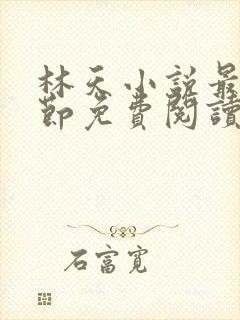 林天小説最
節免費閱讀
石富寬